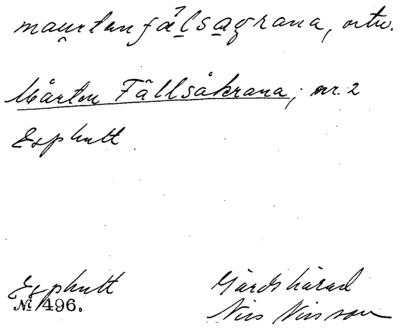 mau̯rtanfålsagrana, ortn.
Mårten Fällsåkrana; nr. 2
Esphult
Esphult Gärds härad
№ 496. Nils Nilsson